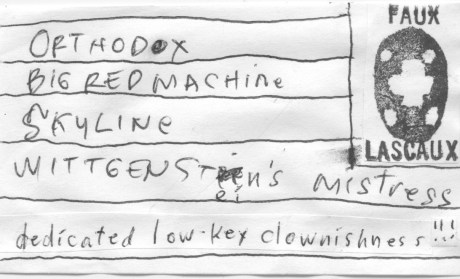 FAUX
ORTHODOX
BIG RED MACHINE
SKYLINE
LASCAUX
WITTGENSTEIN'S MISTRESS
dedicated low-key clownishness!!!